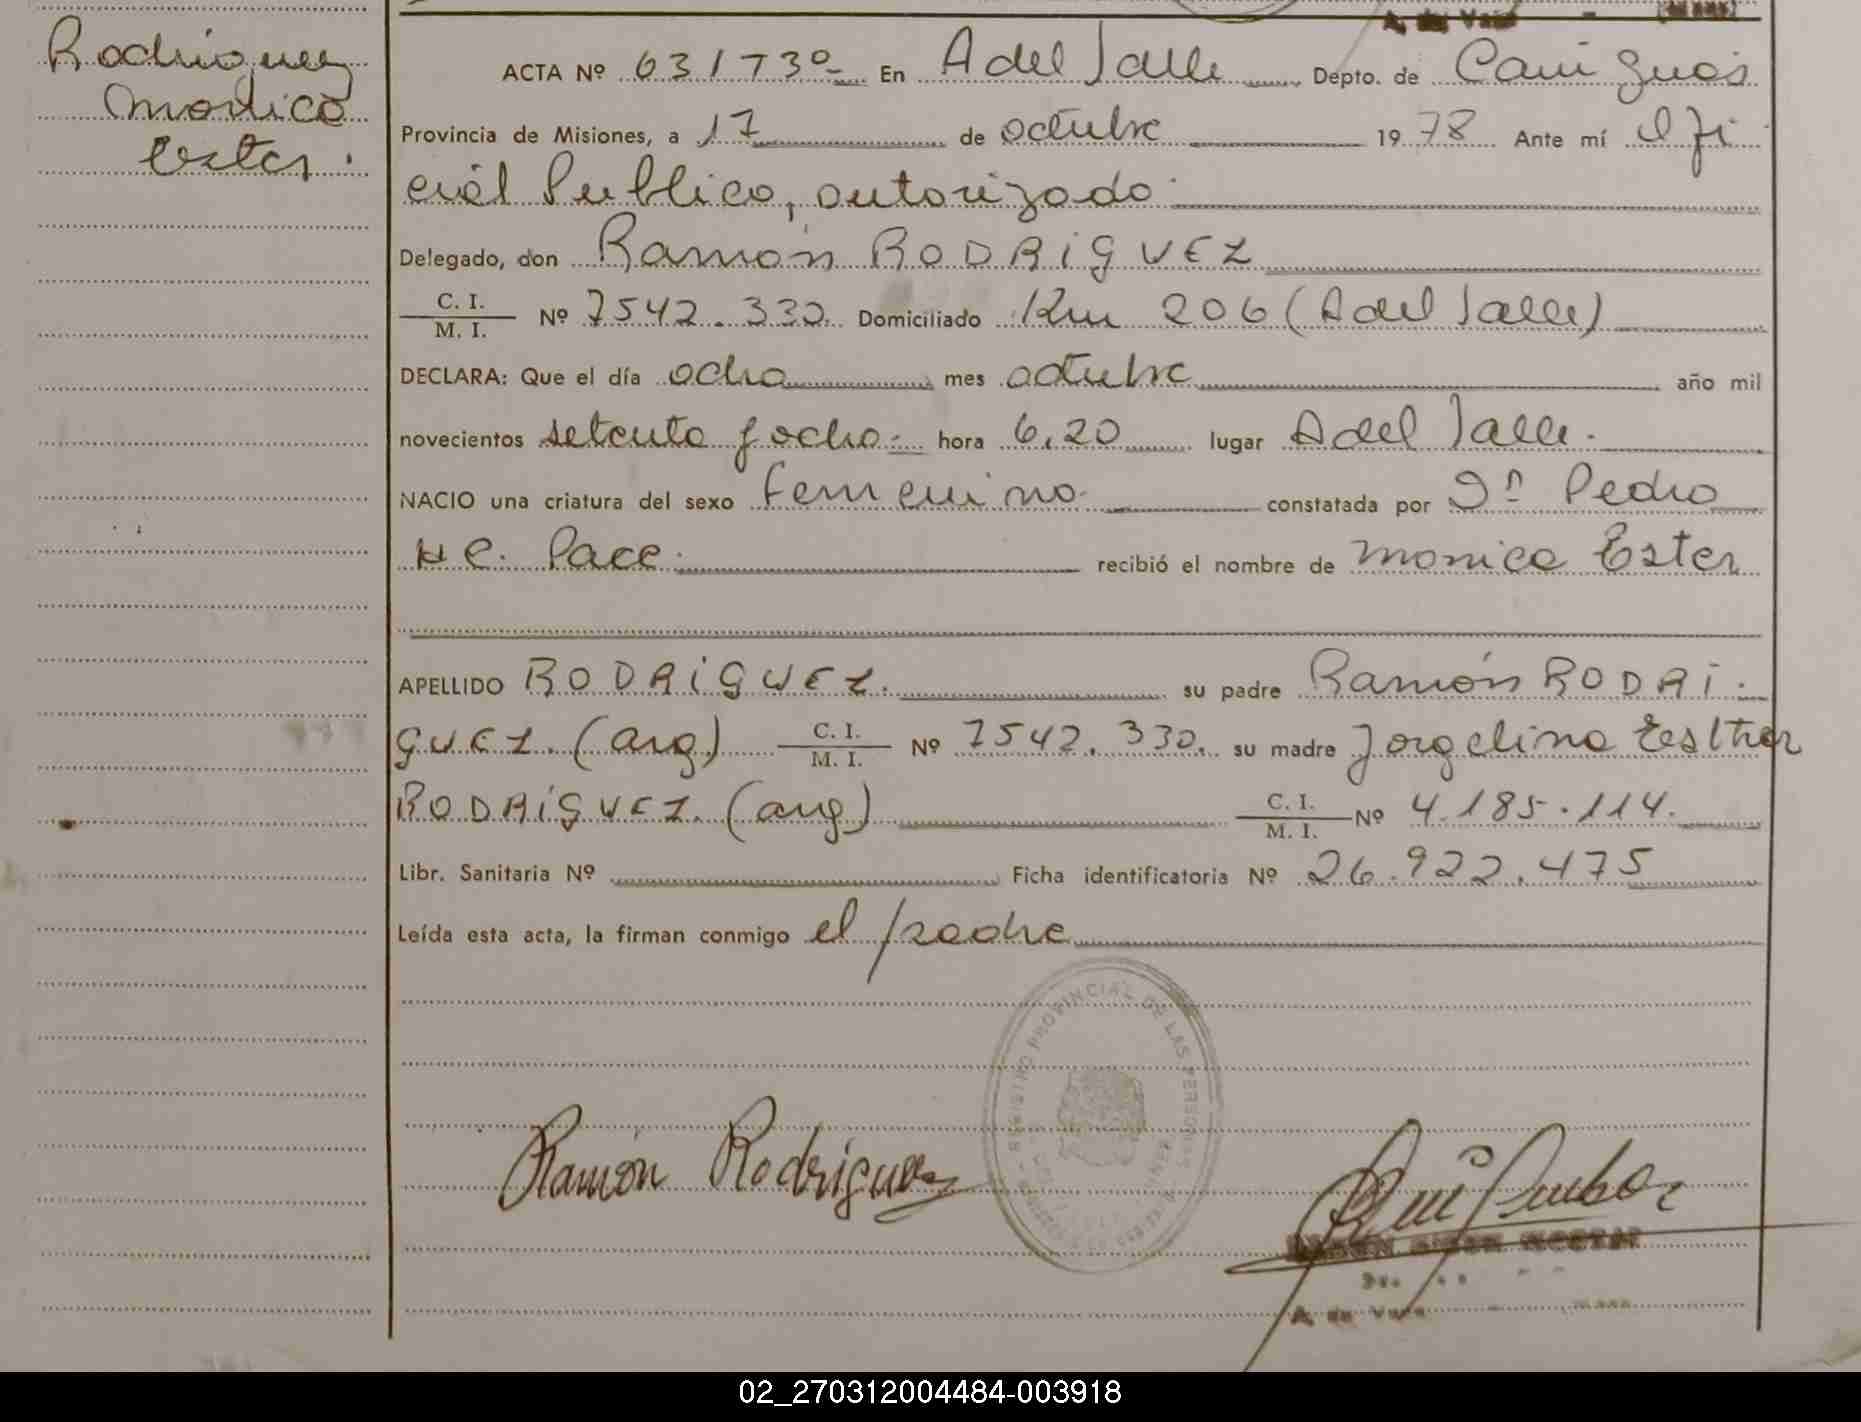 Rodriguez
Monica
Ester.
ACTA Nº 631T3º En A del Valle Depto. de Cainguas
Provincia de Misiones, a 17 de octubre 1978 Ante mí Ofi
cial Publico, autorizado.
Delegado, don Ramón RODRIGUEZ
C. I.
M. I. Nº 7542.330 Domiciliado Km 206 (A del Valle)
DECLARA: Que el día ocho mes octubre año mil
novecientos setenta y ocho.- hora 6,20 lugar A del Valle.
NACIO una criatura del sexo femenino. constatada por Dn Pedro
H C. Pace. recibió el nombre de Monica Ester
APELLIDO RODRIGUEZ. su padre Ramón RODRI.
GUEZ. (arg) C. I.
M. I. Nº 7542.330. su madre Jorgelina Eslther
RODRIGUEZ. (arg) C. I.
M. I. Nº 4.185.114.
Libr. Sanitaria Nº Ficha identificatoria Nº 26.922.475
Leída esta acta, la firman conmigo el padre
REGISTRO PROVINCIAL DE LAS PERSONAS
Ramón Rodriguez
A. del Valle
02_270312004484-003918